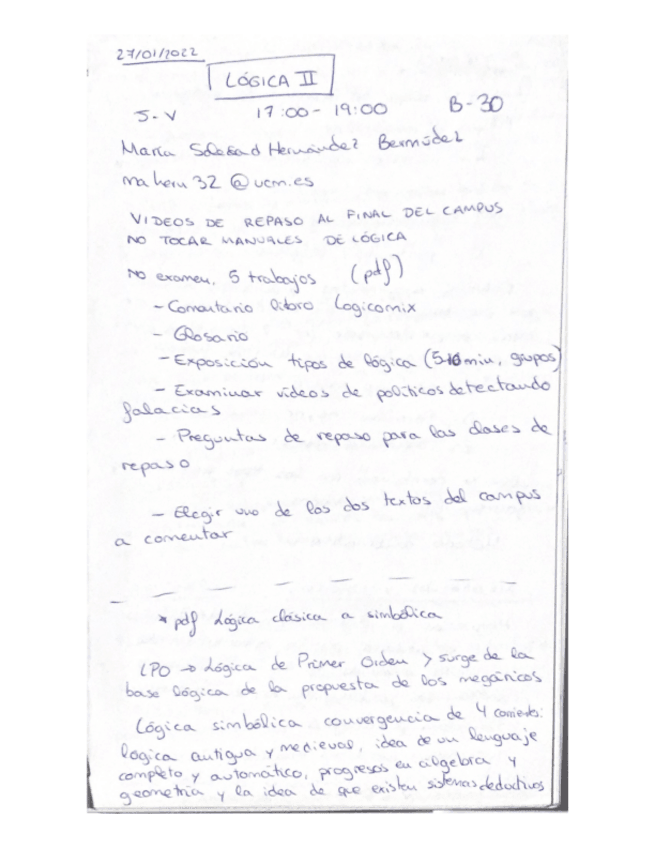 27/01/2022
LÓGICA II
J-V 17:00-19:00 B-30
María Soledad Hernández Bermúdez
maheru32@ucm.es
VIDEOS DE REPASO AL FINAL DEL CAMPUS
NO TOCAR MANUALES DE LÓGICA
No examen, 5 trabajos (pdf)
- Comentario libro Logicomix
- Glosario
- Exposición tipos de lógica (5-10 min, grupos)
- Examinar vídeos de políticos detectando
falacias
- Preguntas de repaso para las clases de
repaso
- Elegir uno de los dos textos del campus
a comentar
* pdf Lógica clásica a simbólica
LPO → Lógica de Primer Orden > surge de la
base lógica de la propuesta de los megáricos
Lógica simbólica convergencia de 4 corrientes:
lógica antigua y medieval, idea de un lenguaje
completo y automático, progresos en álgebra y
geometría y la idea de que existen sistemas deductivos